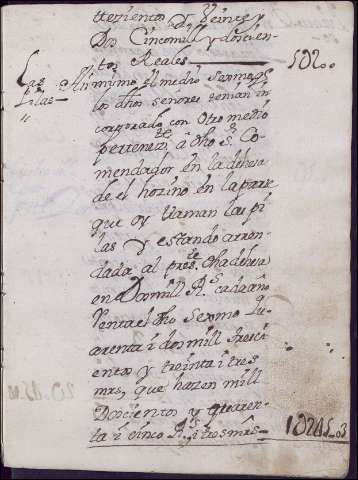 ttezientos y Veinte y
Dos Cincomill y doscien-
tos Reales — 5U200
Las Pilas — Asi mismo el medio sexmo q
los dhos señores tenian in
corporado con otro medio
perteneze. a dho S. Co
mendador en la dehesa
de el hozino en la parte
que oy llaman las pi
las y estando arren
dada al preste. dha dehesa
en Dosmill Rs. cada año
Renta el dho sexmo qu
arenta i dos mill tresci
entos y treinta i tres
mrs, que hazen mill
Docientos y quaren-
ta i cinco Rs. i tres mrs — 1U245..03